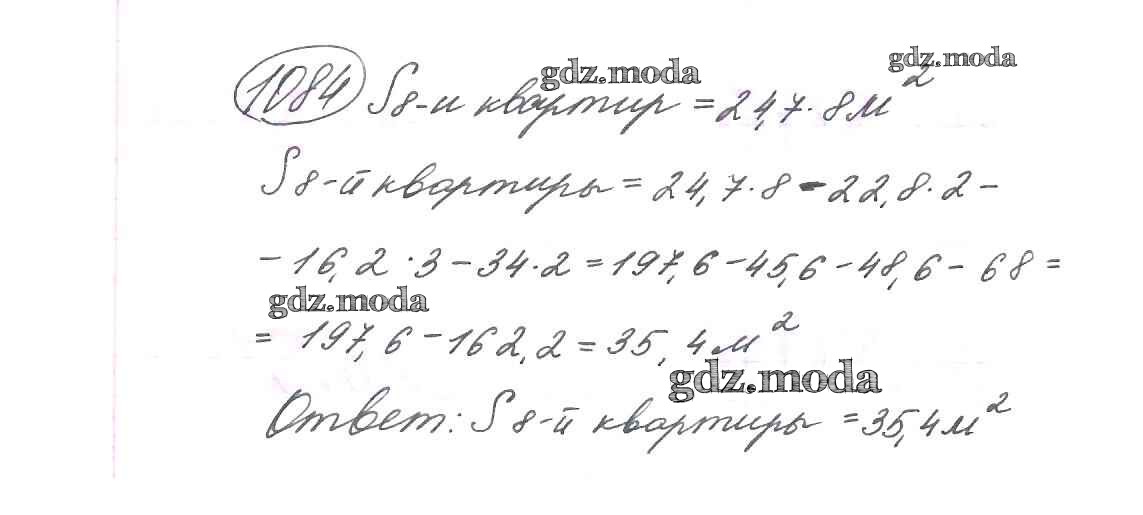 gdz.moda
1084 S 8-и квартир = 24,7 · 8 м²
gdz.moda
S 8-й квартиры = 24,7 · 8 - 22,8 · 2 -
- 16,2 · 3 - 34 · 2 = 197,6 - 45,6 - 48,6 - 68 =
gdz.moda
= 197,6 - 162,2 = 35,4 м²
gdz.moda
Ответ: S 8-й квартиры = 35,4 м²